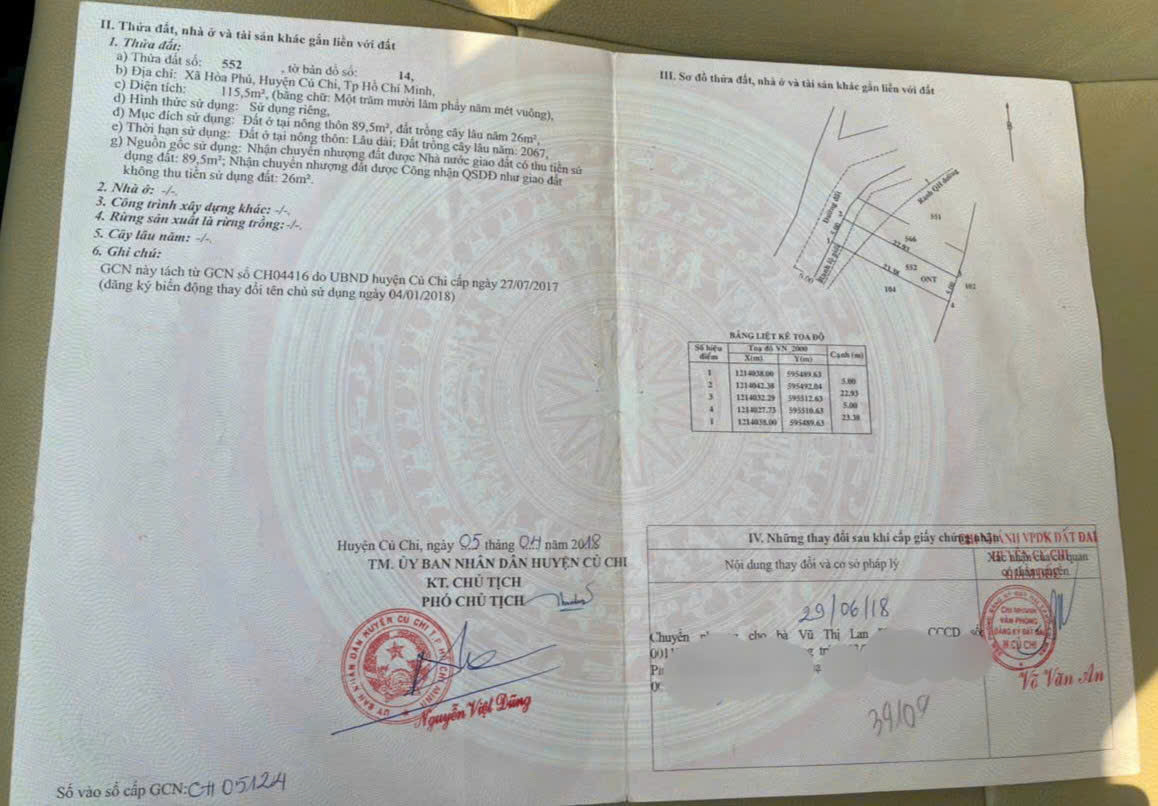 II. Thửa đất, nhà ở và tài sản khác gắn liền với đất
1. Thửa đất:
a) Thửa đất số: 552 , tờ bản đồ số: 14,
b) Địa chỉ: Xã Hòa Phú, Huyện Củ Chi, Tp Hồ Chí Minh,
c) Diện tích: 115,5m², (bằng chữ: Một trăm mười lăm phẩy năm mét vuông),
d) Hình thức sử dụng: Sử dụng riêng,
đ) Mục đích sử dụng: Đất ở tại nông thôn 89,5m², đất trồng cây lâu năm 26m²,
e) Thời hạn sử dụng: Đất ở tại nông thôn: Lâu dài; Đất trồng cây lâu năm: 2067,
g) Nguồn gốc sử dụng: Nhận chuyển nhượng đất được Nhà nước giao đất có thu tiền sử
dụng đất: 89,5m²; Nhận chuyển nhượng đất được Công nhận QSDĐ như giao đất
không thu tiền sử dụng đất: 26m².
2. Nhà ở: -/-.
3. Công trình xây dựng khác: -/-.
4. Rừng sản xuất là rừng trồng: -/-.
5. Cây lâu năm: -/-.
6. Ghi chú:
GCN này tách từ GCN số CH04416 do UBND huyện Củ Chi cấp ngày 27/07/2017
(đăng ký biến động thay đổi tên chủ sử dụng ngày 04/01/2018)
Huyện Củ Chi, ngày 05 tháng 04 năm 2018
TM. ỦY BAN NHÂN DÂN HUYỆN CỦ CHI
KT. CHỦ TỊCH
PHÓ CHỦ TỊCH
ỦY BAN NHÂN DÂN HUYỆN CỦ CHI T.P HỒ CHÍ MINH
Nguyễn Việt Dũng
Số vào sổ cấp GCN: CH 05124
III. Sơ đồ thửa đất, nhà ở và tài sản khác gắn liền với đất
B
Đường đất
Ranh QH đường
Ranh lộ giới
6.00
5.00
1
2
551
566
22.93
552
ONT
23.38
104
5.00
3
4
102
BẢNG LIỆT KÊ TOẠ ĐỘ
Số hiệu điểm Toạ độ VN_2000 Cạnh (m)
X(m) Y(m)
1 1214038.00 595489.63
5.00
2 1214042.38 595492.04
22.93
3 1214032.29 595512.63
5.00
4 1214027.73 595510.63
23.38
1 1214038.00 595489.63
IV. Những thay đổi sau khi cấp giấy chứng nhận
Nội dung thay đổi và cơ sở pháp lý
Xác nhận của cơ quan
có thẩm quyền
CHI NHÁNH VPĐK ĐẤT ĐAI
HUYỆN CỦ CHI
29/06/18
Chuyển cho bà Vũ Thị Lan CCCD số
CHI NHÁNH
VĂN PHÒNG
ĐĂNG KÝ ĐẤT ĐAI
H CỦ CHI
Võ Văn An